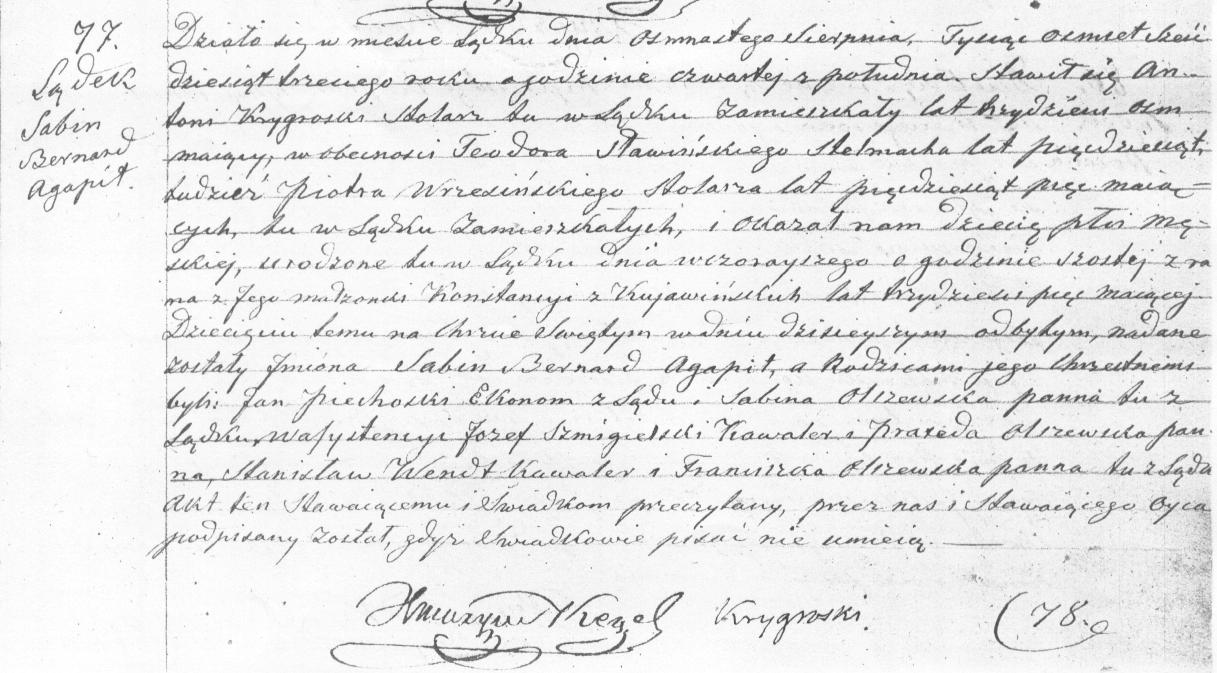 77.
Lądek
Sabin
Bernard
Agapit.
Działo się w mieście Lądku dnia osmnastego Sierpnia, Tysiąc osmset sześć
dziesiąt trzeciego roku o godzinie czwartej z południa. Stawił się An-
toni Krygroski Stolarz tu w Lądku Zamieszkały lat trzydzieści osm
maiący, w obecności Teodora Sławińskiego Stelmacha lat pięćdziesiąt,
tudzież Piotra Wrzesińskiego Stolarza lat pięćdziesiąt pięć maią=
cych, tu w Lądku Zamieszkałych, i okazał nam dziecię płci mę-
skiej, urodzone tu w Lądku dnia wczorayszego o godzinie szostej z ra
na z Jego małżonki Konstancyi z Kujawińskich lat trzydzieści pięć maiącej
Dziecięciu temu na Chrzcie Swiętym w dniu dzisieyszym odbytym, nadane
zostały Jmióna Sabin Bernard Agapit, a Rodzicami jego Chrzestnemi
byli: Jan Piechoski Ekonom z Lądu i Sabina Olszewska panna tu z
Lądku, w Assystencyi Jozef Szmigielski Kawaler i Praxeda Olszewska pan-
na, Stanisław Wendt Kawaler i Franciszka Olszewska panna tu z Lądu
Akt ten Stawaiącemu i Swiadkom przeczytany, przez nas i Stawaiącego Oyca
podpisany został, gdyż Swiadkowie pisać nie umieią.
Krygroski.
(78.